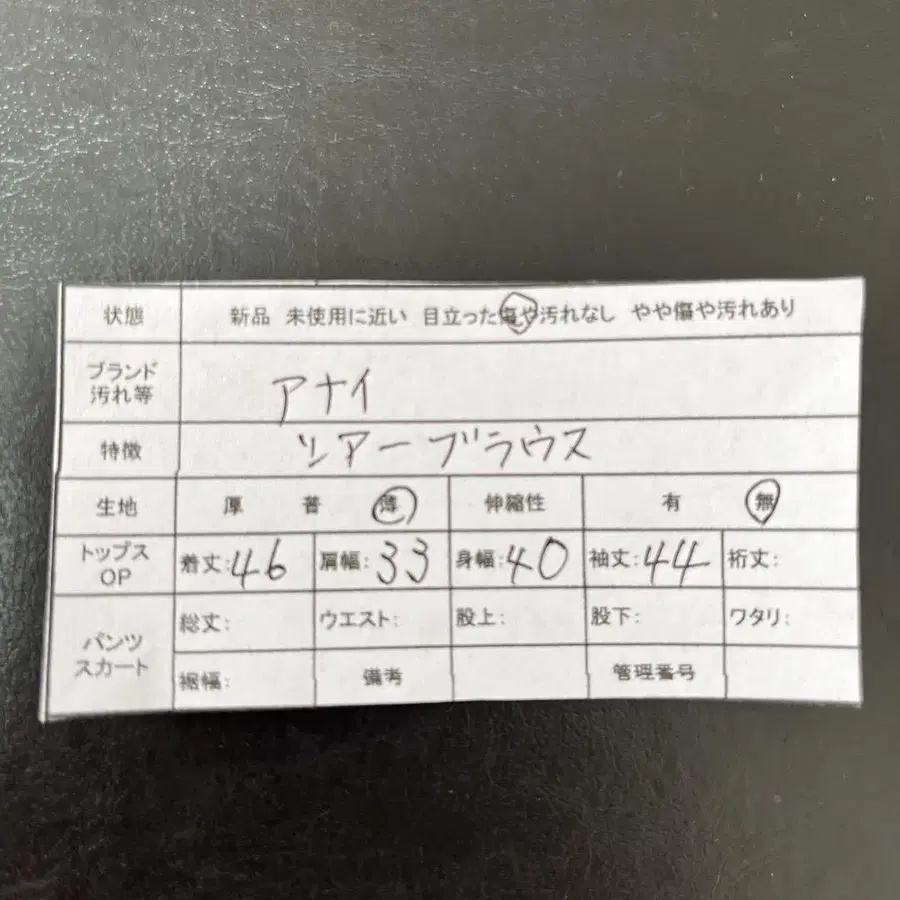 状態 新品 未使用に近い 目立った傷や汚れなし やや傷や汚れあり
ブランド
汚れ等
アナイ
特徴 シアーブラウス
生地 厚 普 薄 伸縮性 有 無
トップス
OP
着丈:46 肩幅:33 身幅:40 袖丈:44 裄丈:
パンツ
スカート
総丈: ウエスト: 股上: 股下: ワタリ:
裾幅: 備考 管理番号